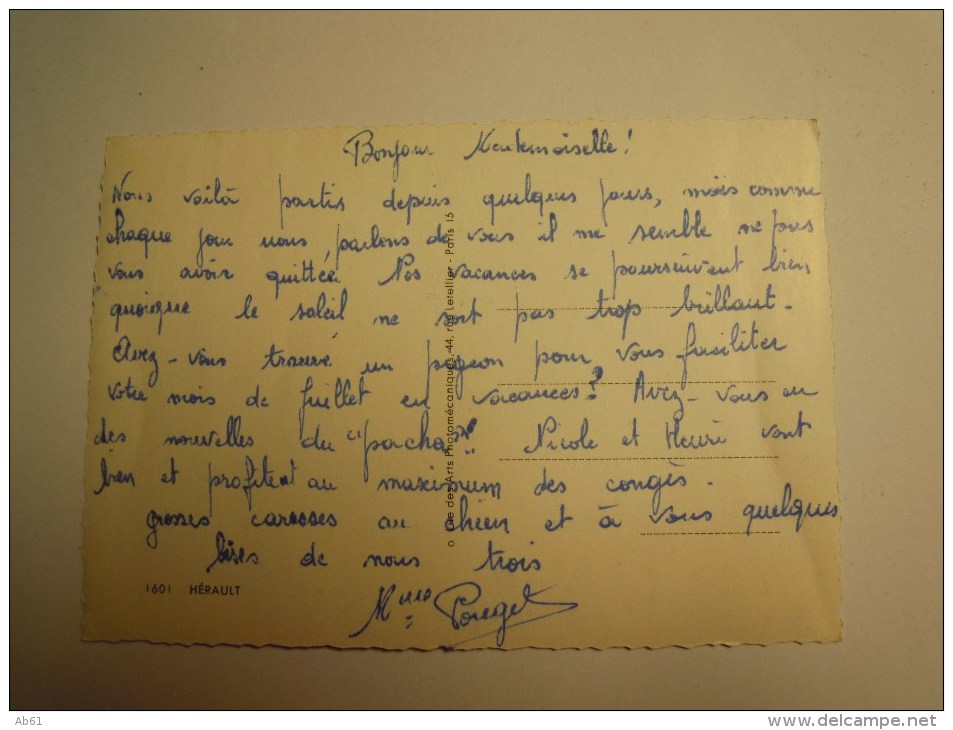 Bonjour Mademoiselle!
Nous voilà partis depuis quelques jours, mais comme
chaque jour nous parlons de vous il me semble ne pas
vous avoir quittée. Nos vacances se poursuivent bien
quoique le soleil ne soit pas trop brillant.
Avez-vous trouvé un pigeon pour vous faciliter
votre mois de Juillet en vacances? Avez-vous eu
des nouvelles du "pacha"? Nicole et Henri vont
bien et profitent au maximum des congès.
grosses caresses au chien et à vous quelques
bises de nous trois
Mme Pouget
1601 HÉRAULT
des Arts Photomécaniques, 44, rue Letellier - Paris 15
Ab61
www.delcampe.net